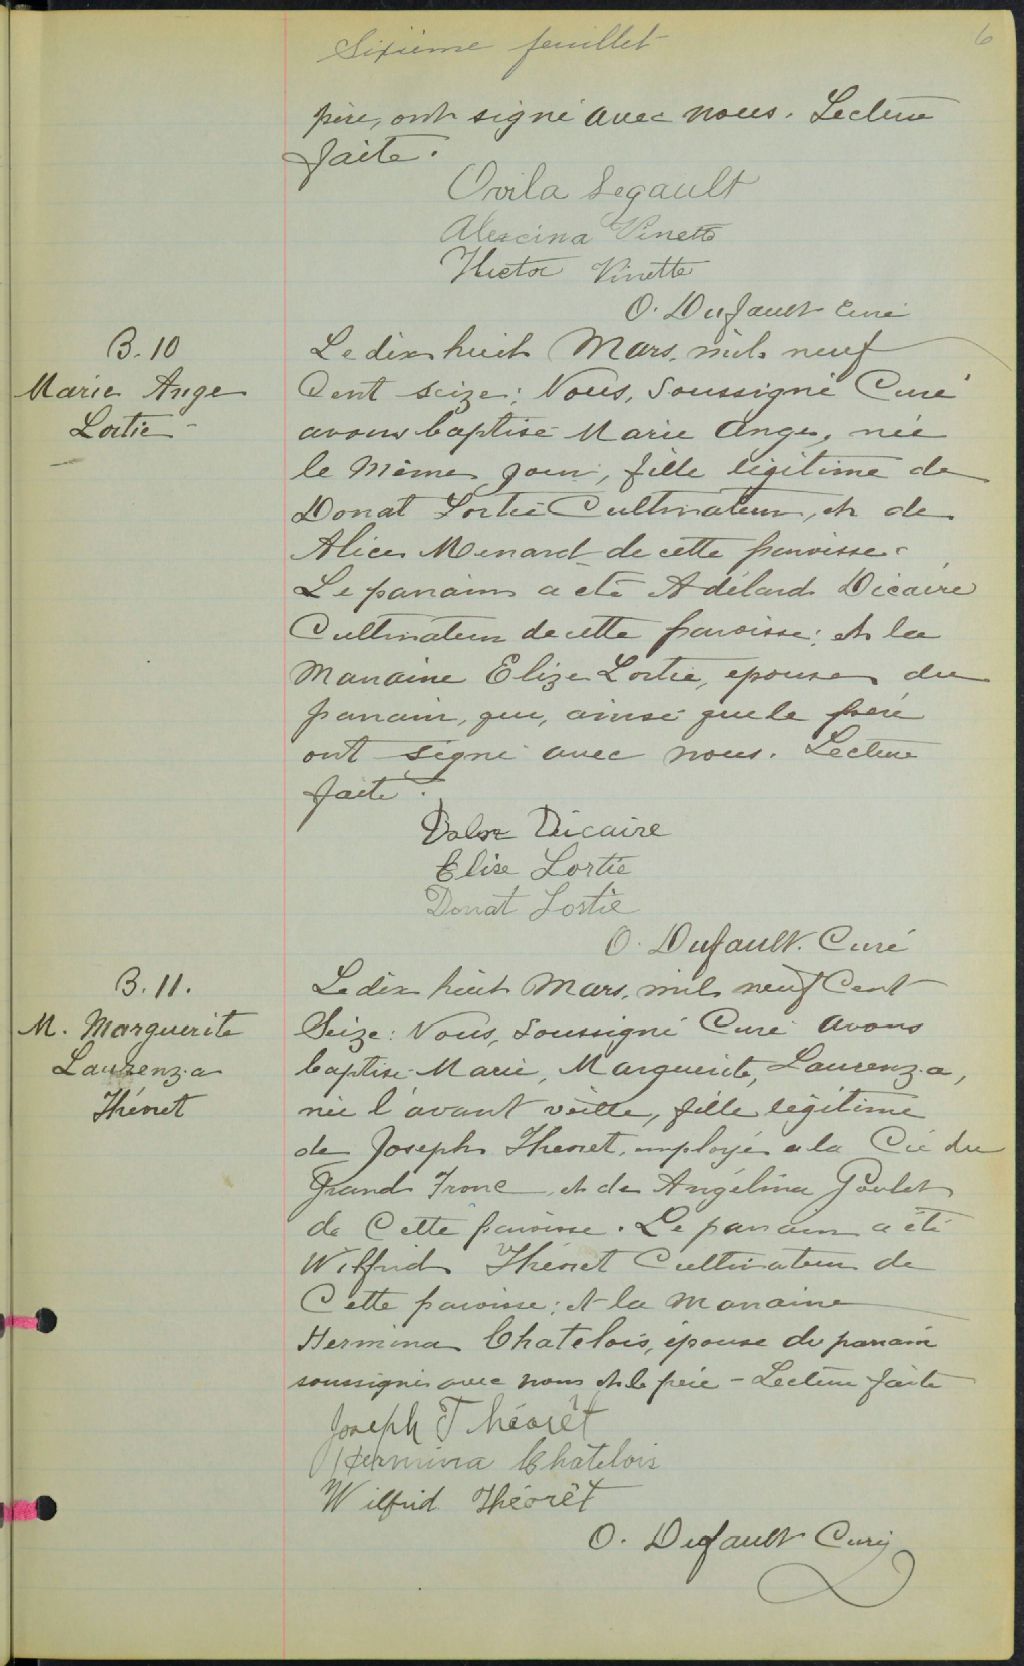 Sixième feuillet
6
père, ont signé avec nous. Lecture
faite.
Ovila Legault
Alexina Vinette
Hector Vinette
O. Dufault Curé
B. 10
Marie Ange
Lortie
Le dix huit Mars, mil neuf
Cent seize; Nous, Soussigné Curé
avons baptisé Marie Ange, née
le Même jour, fille légitime de
Donat Lortie Cultivateur, et de
Alice Menard de cette paroisse.
Le parrain a été Adélard Dicaire
Cultivateur de cette paroisse; et la
Marraine Elize Lortie, épouse du
parrain, qui, ainsi que le père
ont signé avec nous. Lecture
faite.
Dicaire
Elise Lortie
Donat Lortie
O. Dufault. Curé
B. 11.
M. Marguerite
Laurenza
Théoret
Le dix huit Mars, mil neuf Cent
Seize: Nous, Soussigné Curé avons
baptisé Marie, Marguerite, Laurenza,
née l'avant veille, fille légitime
de Joseph Théoret, employé a la Cie du
Grand Tronc, et de Angélina Poulet
de Cette paroisse. Le parrain a été
Wilfrid Théoret Cultivateur de
Cette paroisse; et la Marraine
Hermina Chatelois, épouse du parrain
soussignés avec nous et le père - Lecture faite
Joseph Théorêt
Hermina Chatelois
Wilfrid Théorêt
O. Dufault Curé